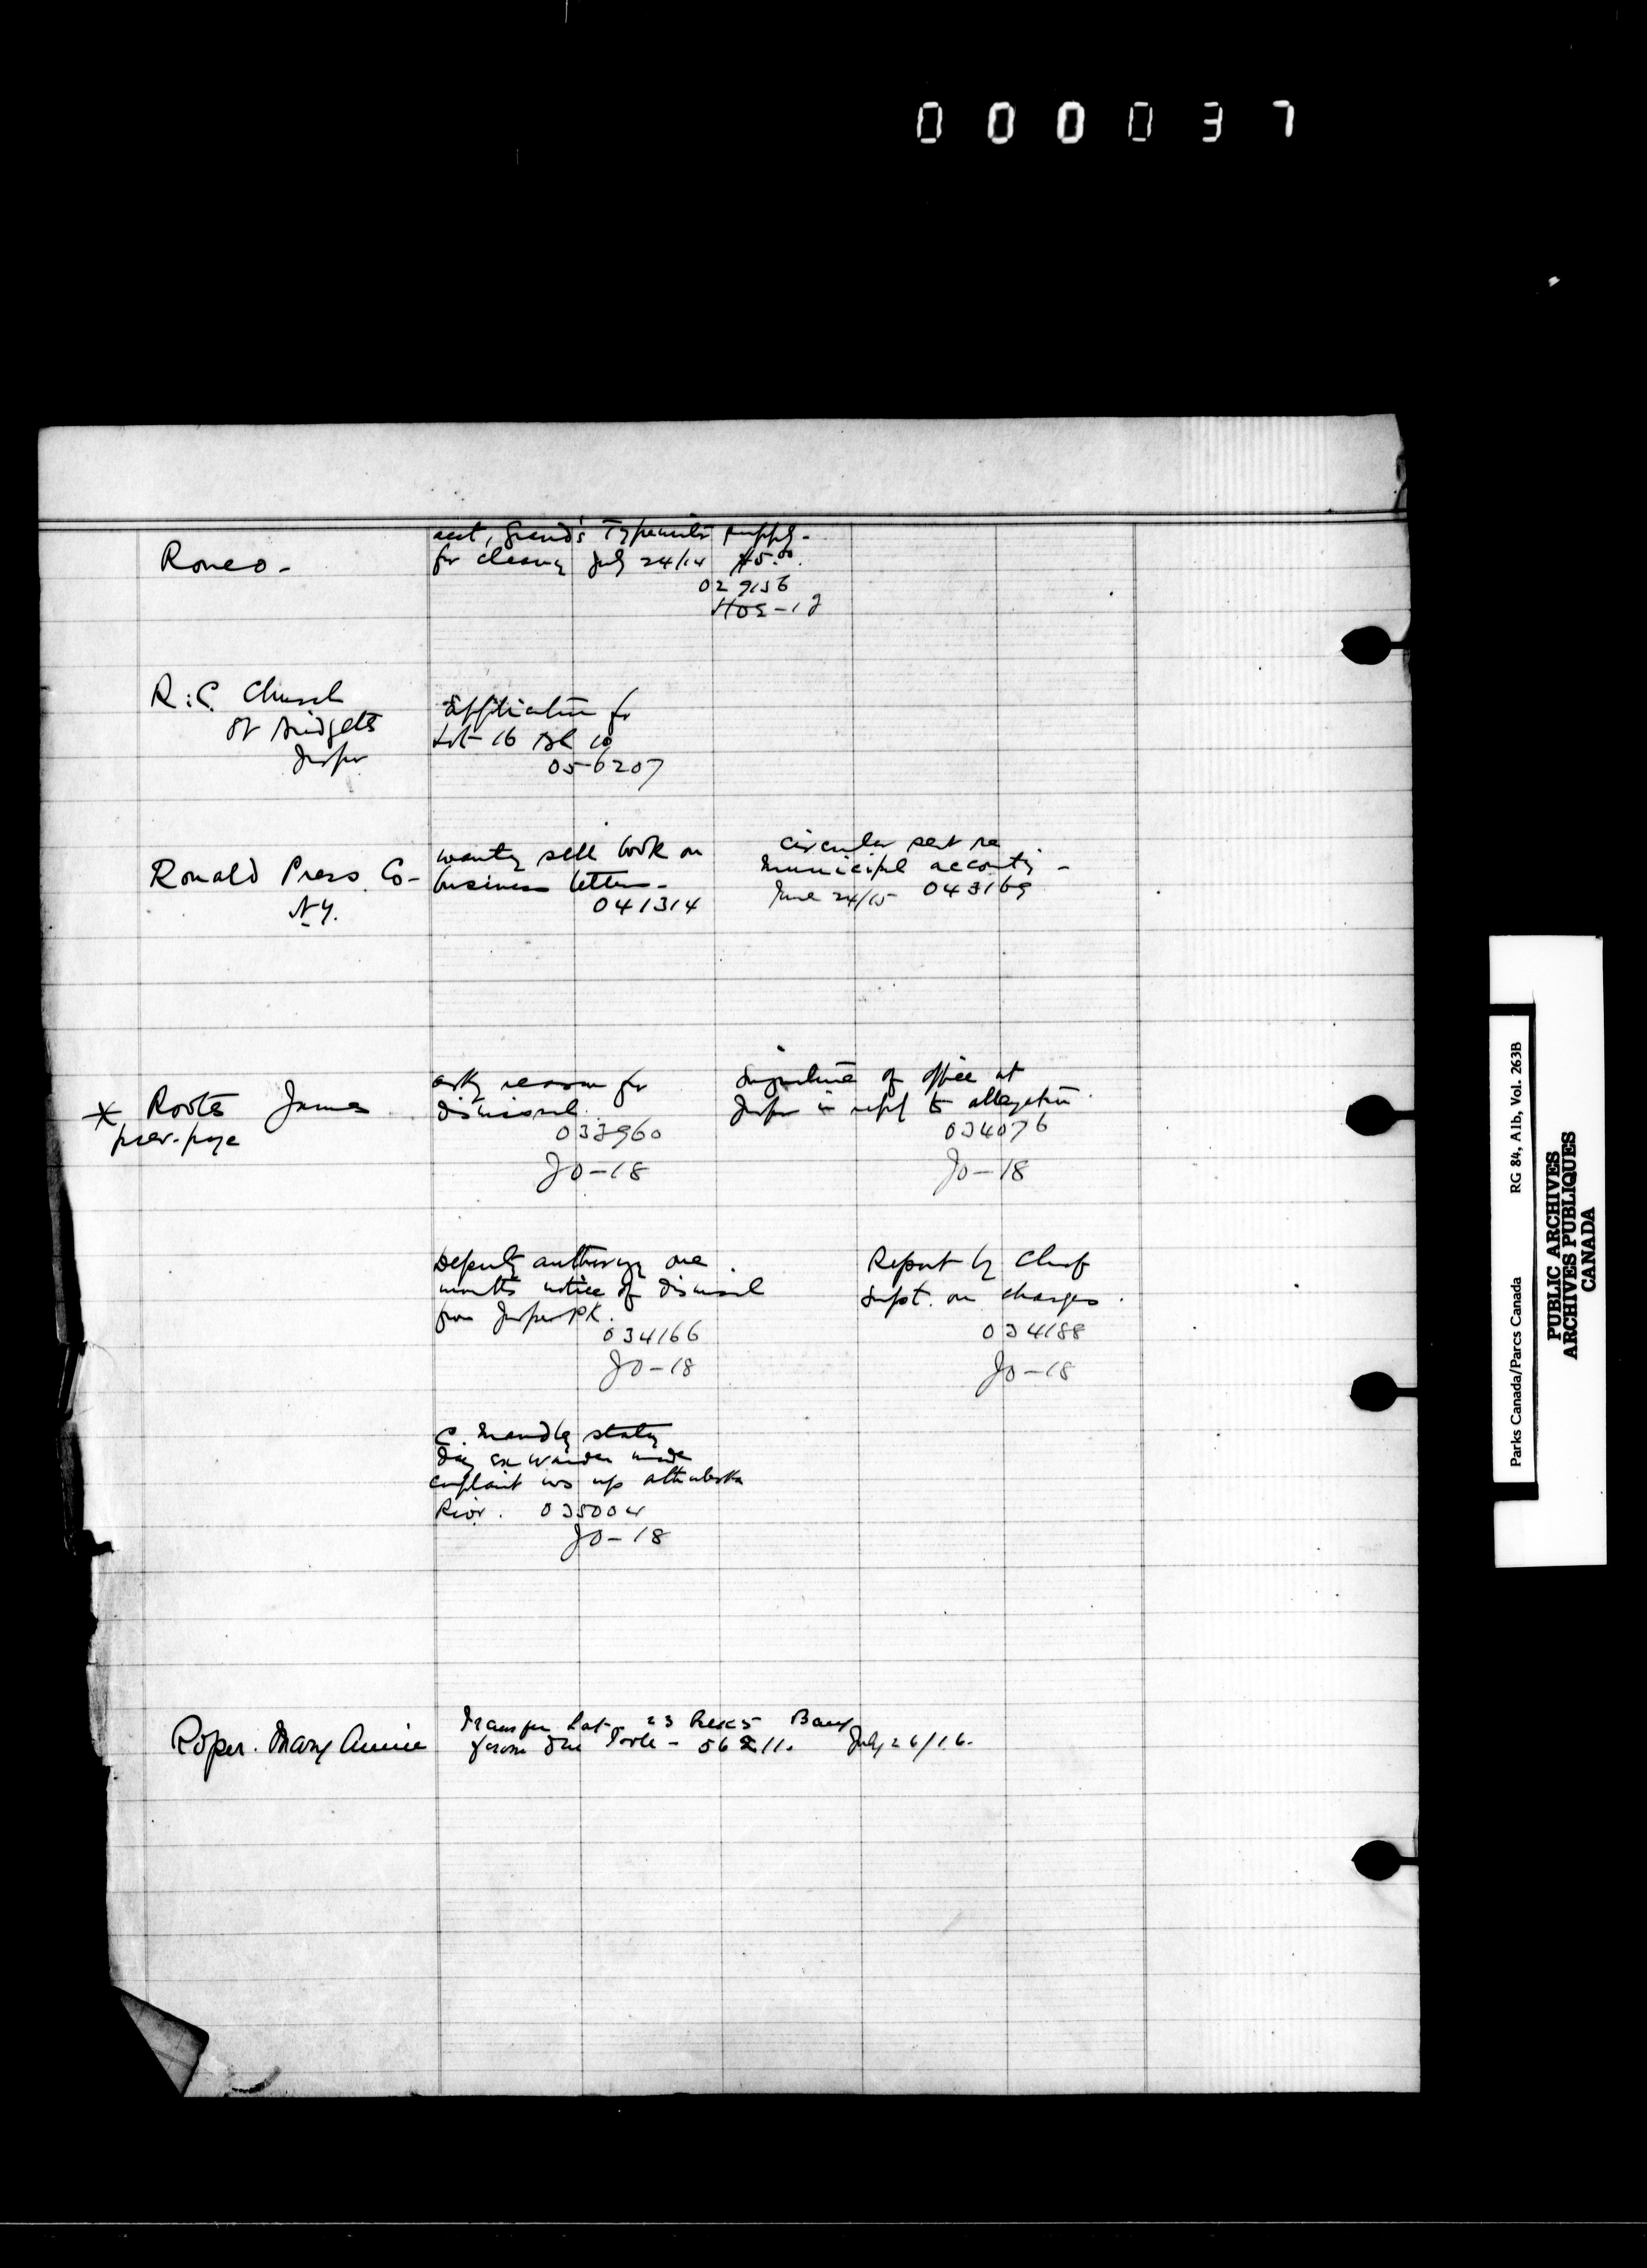 000037
Roneo -
acct, Grand's Typewriter supply -
for cleaning July 24/14 $5.00
029136
R.C. Church
St Bridgets
Jasper
Application for
Lot 16 Bl 10
056207
Ronald Press Co -
N.Y.
wanting sell book on
business letters -
041314
circular sent re
municipal accounting -
June 24/15 043169
* Roots James
prev. page
asking reason for
dismissal.
033960
JO-18
Signature of office at
Jasper in reply to allegation.
034076
JO-18
Deputy authorizing one
months notice of dismissal
from Jasper PK.
034166
JO-18
Report by Chief
Supt. on charges.
034188
JO-18
C. stating
day ex warden made
complaint was up Athabaska
River. 035004
JO-18
Roper. Mary Annie
Transfer Lot 23 Block 5 Banff
from - 56211. July 26/16.
Parks Canada/Parcs Canada RG 84, A1b, Vol. 263B
PUBLIC ARCHIVES
ARCHIVES PUBLIQUES
CANADA